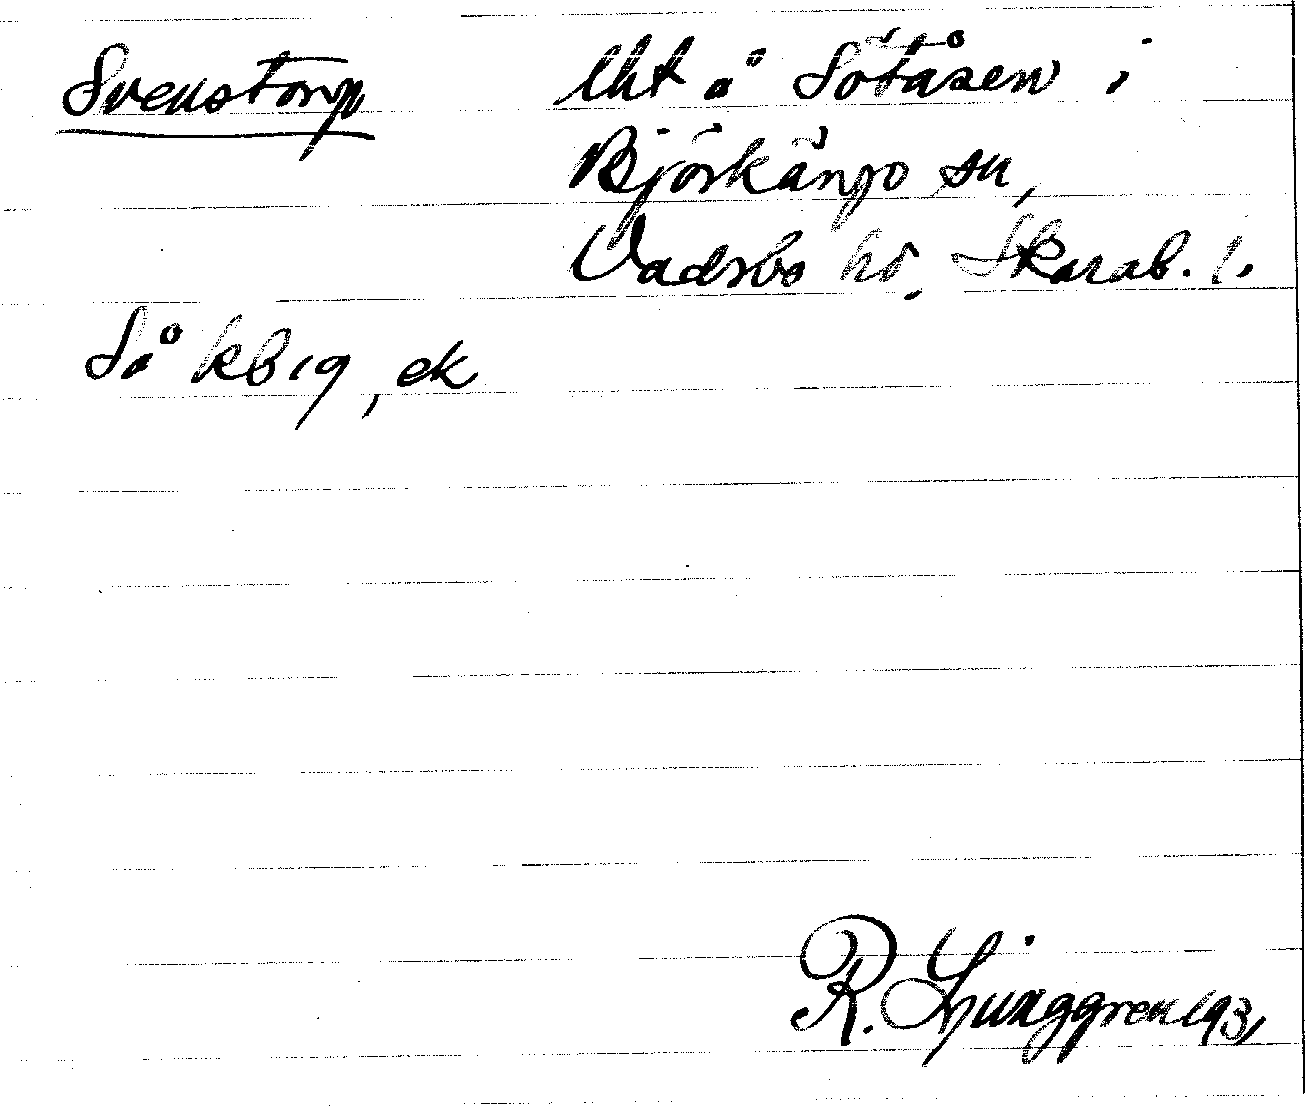 Svenstorp lht å Sötåsen i
Björkängs sn,
Vadsbo hd. Skarab. l.
Så kb 19, ek
R. Ljunggren 1931